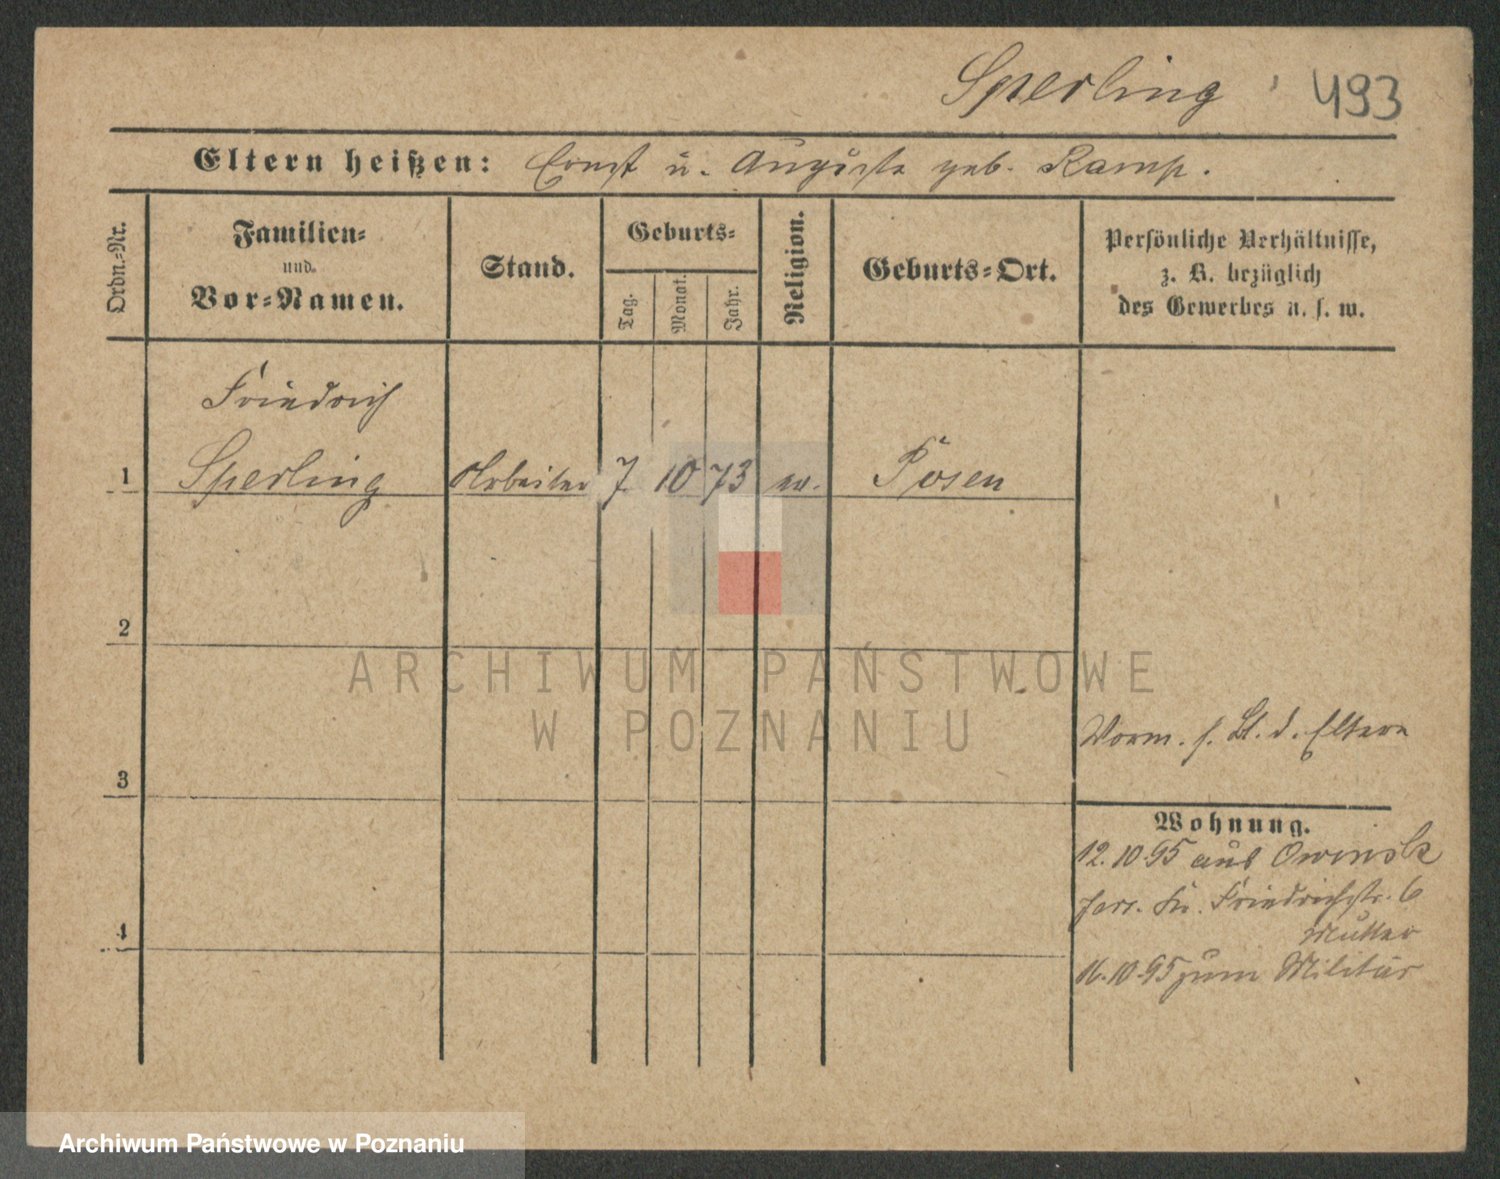 Sperling 493
Eltern heißen: Ernst u. Auguste geb. Kamp.
Ordn.-Nr.
Familien-
und
Vor-Namen.
Stand.
Geburts-
Tag.
Monat.
Jahr.
Religion.
Geburts-Ort.
Persönliche Verhältnisse,
z. B. bezüglich
des Gewerbes u. s. w.
Friedrich
1 Sperling Arbeiter 7 10 73 ev. Posen
2
ARCHIWUM PAŃSTWOWE
W POZNANIU
Vorm. s. Bl. d. Eltern
3
Wohnung.
12.10.95 aus Owinsk
Friedrichstr. 6
Mutter
4
16.10.95 zum Militär
Archiwum Państwowe w Poznaniu